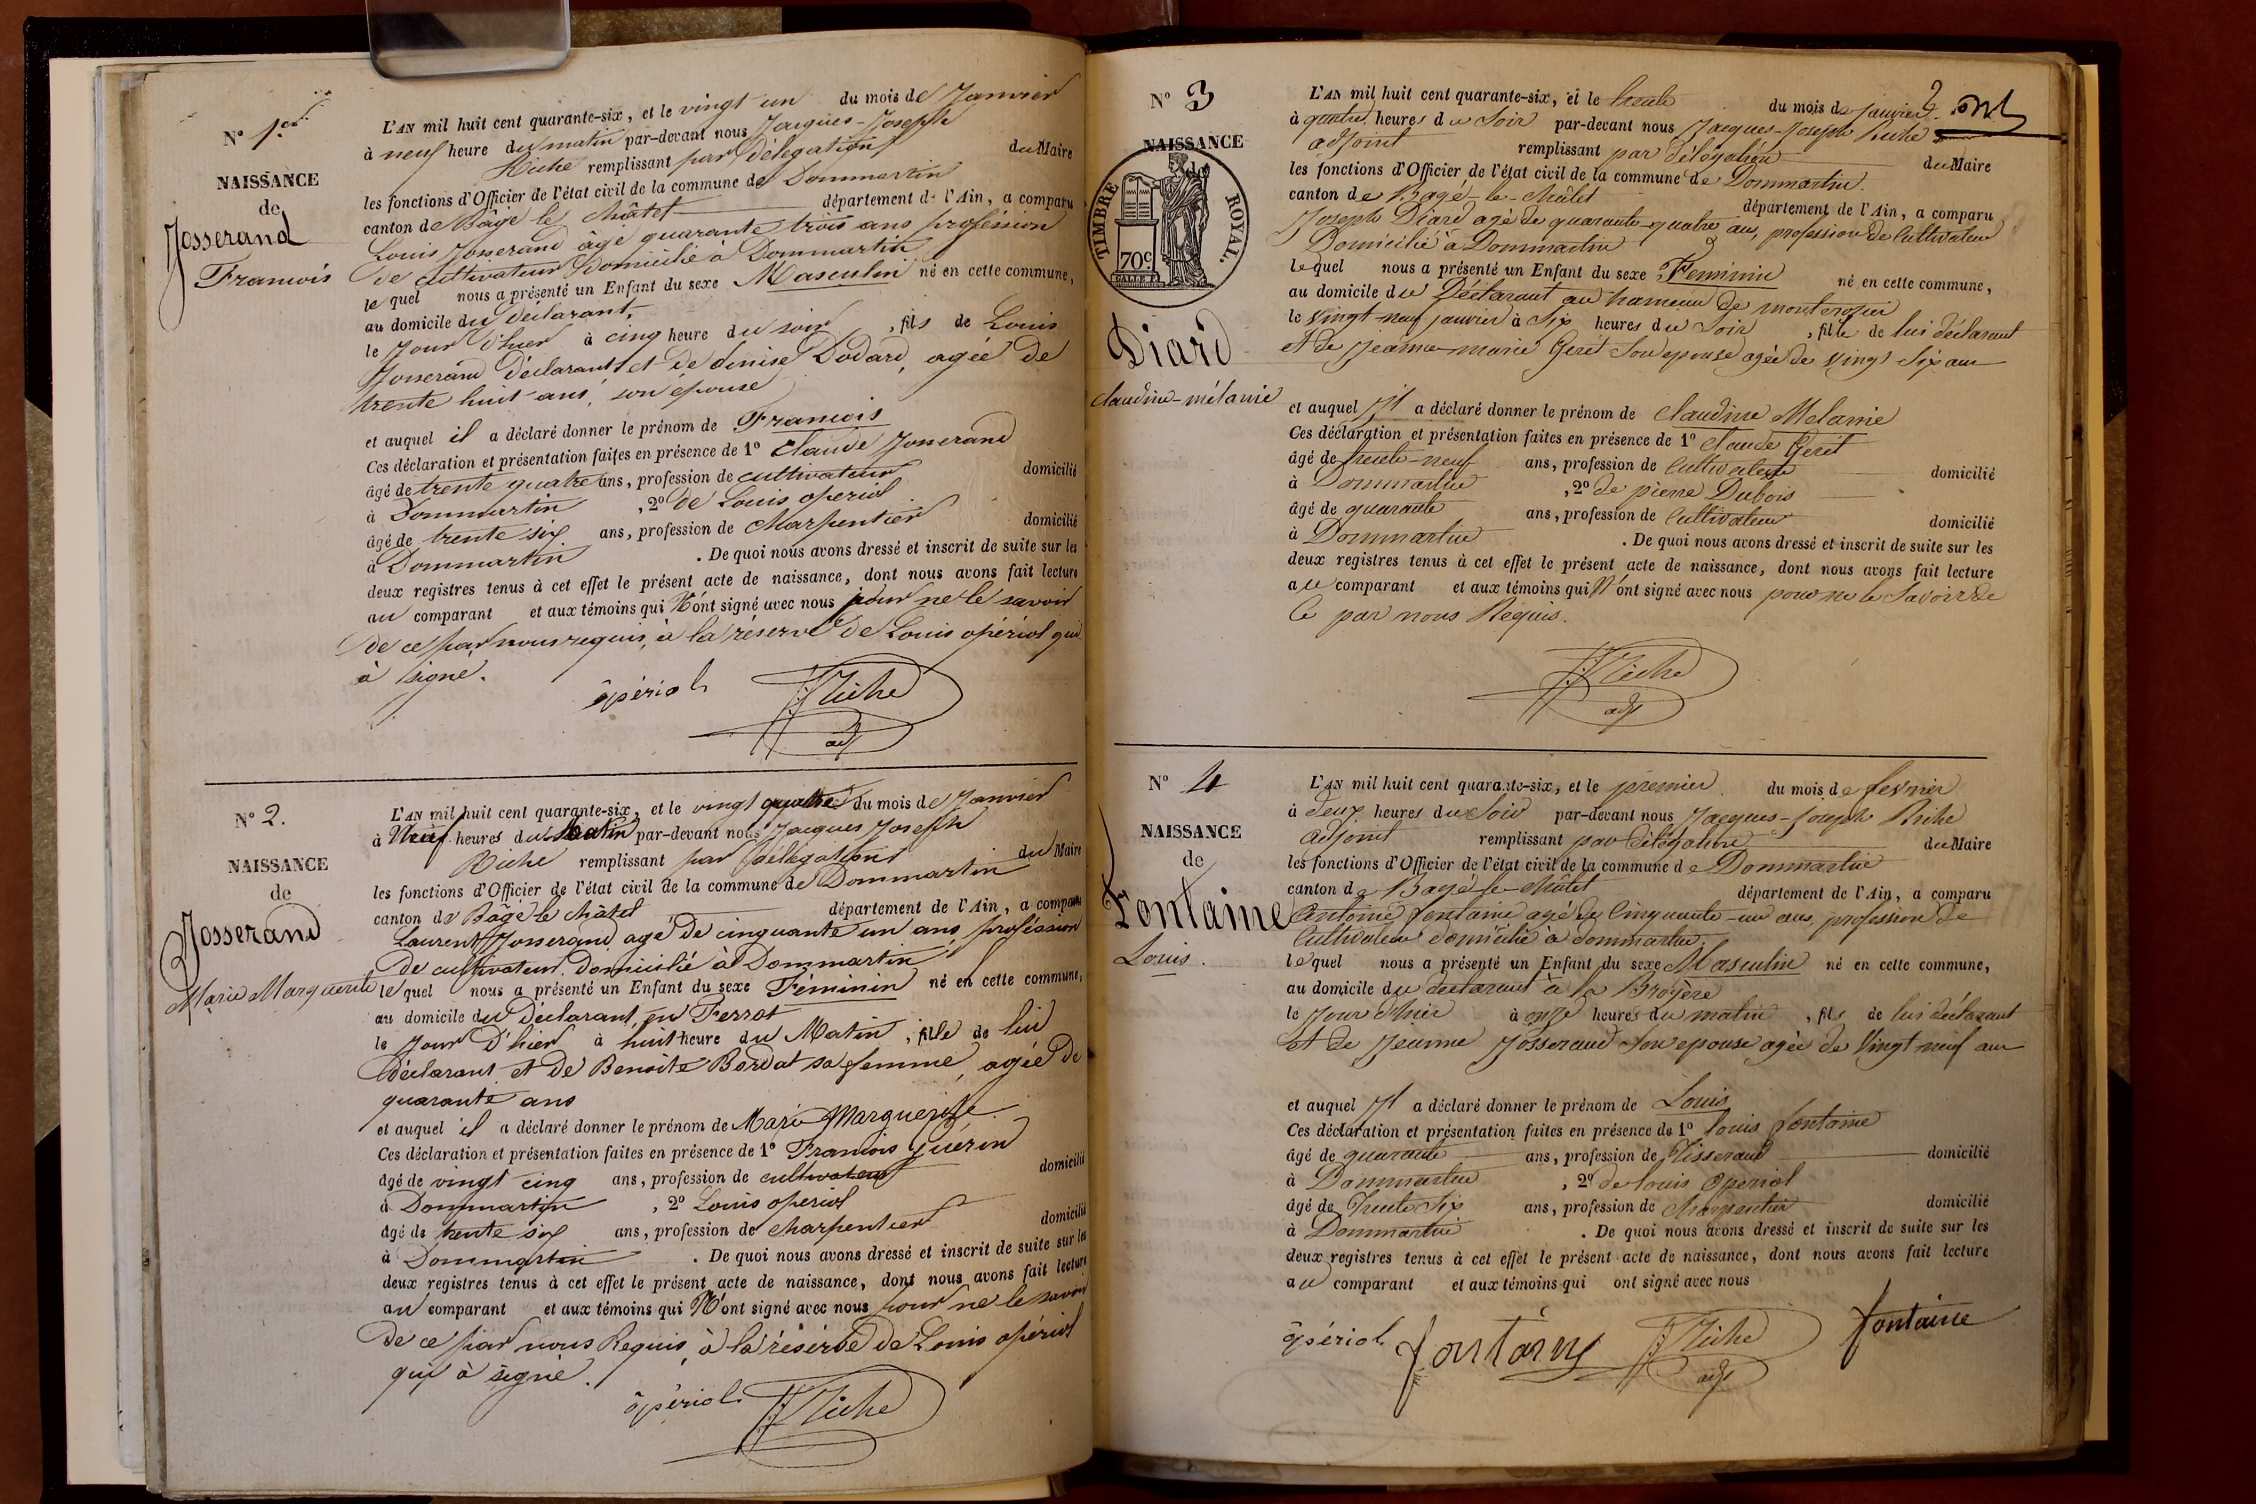 N° 1.er
NAISSANCE
de
Josserand
Francois
L'AN mil huit cent quarante-six, et le vingt un du mois de Janvier
à neuf heure du matin par-devant nous Jacques-Joseph
Riche remplissant par délégation du Maire
les fonctions d'Officier de l'état civil de la commune de Dommartin
canton de Bâgé le Châtel département de l'Ain, a comparu
Louis Josserand âgé quarante trois ans profession
de cultivateur domicilié à Dommartin
lequel nous a présenté un Enfant du sexe Masculin né en cette commune,
au domicile du déclarant,
le jour d'hier à cinq heure du soir, fils de Louis
Josserand déclarant et de denise Dodard, agée de
trente huit ans, son épouse
et auquel il a déclaré donner le prénom de Francois
Ces déclaration et présentation faites en présence de 1° Claude Josserand
âgé de trente quatre ans, profession de cultivateur domicilié
à Dommartin, 2° de Louis opériol
âgé de trente six ans, profession de charpentier domicilié
à Dommartin. De quoi nous avons dressé et inscrit de suite sur les
deux registres tenus à cet effet le présent acte de naissance, dont nous avons fait lecture
au comparant et aux témoins qui N'ont signé avec nous pour ne le savoir
de ce par nous requis, à la réserve de Louis opériol qui
à signé.
opériol JJRiche
adj
N° 2.
NAISSANCE
de
Josserand
Marie Marguerite
L'AN mil huit cent quarante-six, et le vingt quatre du mois de Janvier
à Neuf heures du Matin par-devant nous Jacques Joseph
Riche remplissant par délégation du Maire
les fonctions d'Officier de l'état civil de la commune de Dommartin
canton de Bâgé le Châtel département de l'Ain, a comparu
Laurent Josserand agé de cinquante un ans profession
de cultivateur domicilié à Dommartin
lequel nous a présenté un Enfant du sexe Féminin né en cette commune,
au domicile du déclarant, en Ferrot
le jour D'hier à huit heure du Matin, fille de lui
déclarant et de Benoite Bordat sa femme, agée de
quarante ans
et auquel il a déclaré donner le prénom de Marie Marguerite
Ces déclaration et présentation faites en présence de 1° Francois Guérin
âgé de vingt cinq ans, profession de cultivateur domicilié
à Dommartin, 2° Louis opériol
âgé de trente six ans, profession de charpentier domicilié
à Dommartin. De quoi nous avons dressé et inscrit de suite sur les
deux registres tenus à cet effet le présent acte de naissance, dont nous avons fait lecture
au comparant et aux témoins qui N'ont signé avec nous pour ne le savoir
de ce par nous Requis, à la réserve de Louis opériol
qui à signé.
opériol JJRiche
N° 3
NAISSANCE
de
TIMBRE ROYAL.
70c
Diard
claudine-mélanie
L'AN mil huit cent quarante-six, et le trente du mois de janvier
à quatre heures du Soir par-devant nous Jacques-Joseph Riche
adjoint remplissant par délégation du Maire
les fonctions d'Officier de l'état civil de la commune de Dommartin.
canton de Bagé-le-Châtel département de l'Ain, a comparu
Joseph Diard agé de quarante-quatre ans, profession de Cultivateur
Domicilié à Dommartin
lequel nous a présenté un Enfant du sexe Feminin né en cette commune,
au domicile du Déclarant au hameau de monterozier
le vingt-neuf janvier à Six heures du Soir, fille de lui déclarant
et de Jeanne-marie Geret Son epouse agée de vingt Six ans
et auquel Il a déclaré donner le prénom de Claudine Melanie
Ces déclaration et présentation faites en présence de 1° Claude Geret
âgé de trente-neuf ans, profession de Cultivateur domicilié
à Dommartin, 2° de pierre Dubois
âgé de quarante ans, profession de Cultivateur domicilié
à Dommartin. De quoi nous avons dressé et inscrit de suite sur les
deux registres tenus à cet effet le présent acte de naissance, dont nous avons fait lecture
au comparant et aux témoins qui N'ont signé avec nous pour ne le Savoir de
Ce par nous Requis.
JJRiche
adj
N° 4
NAISSANCE
de
Fontaine
Louis.
L'AN mil huit cent quarante-six, et le premier du mois de fevrier
à deux heures du Soir par-devant nous Jacques-Joseph Riche
adjoint remplissant par délégation du Maire
les fonctions d'Officier de l'état civil de la commune de Dommartin
canton de Bagé-le-Châtel département de l'Ain, a comparu
Antoine fontaine agé de Cinquante-un ans, profession de
Cultivateur domicilié à dommartin.
lequel nous a présenté un Enfant du sexe Masculin né en cette commune,
au domicile du déclarant à la Broyère
le jour d'hier à onze heures du matin, fils de lui déclarant
et de Jeanne Josserand Son epouse agée de Vingt neuf ans
et auquel Il a déclaré donner le prénom de Louis
Ces déclaration et présentation faites en présence de 1° louis fontaine
âgé de quarante ans, profession de Tisserand domicilié
à Dommartin, 2° de louis Operiol
âgé de Trente Six ans, profession de Charpentier domicilié
à Dommartin. De quoi nous avons dressé et inscrit de suite sur les
deux registres tenus à cet effet le présent acte de naissance, dont nous avons fait lecture
au comparant et aux témoins qui ont signé avec nous
opériol fontaine JJRiche fontaine
adj